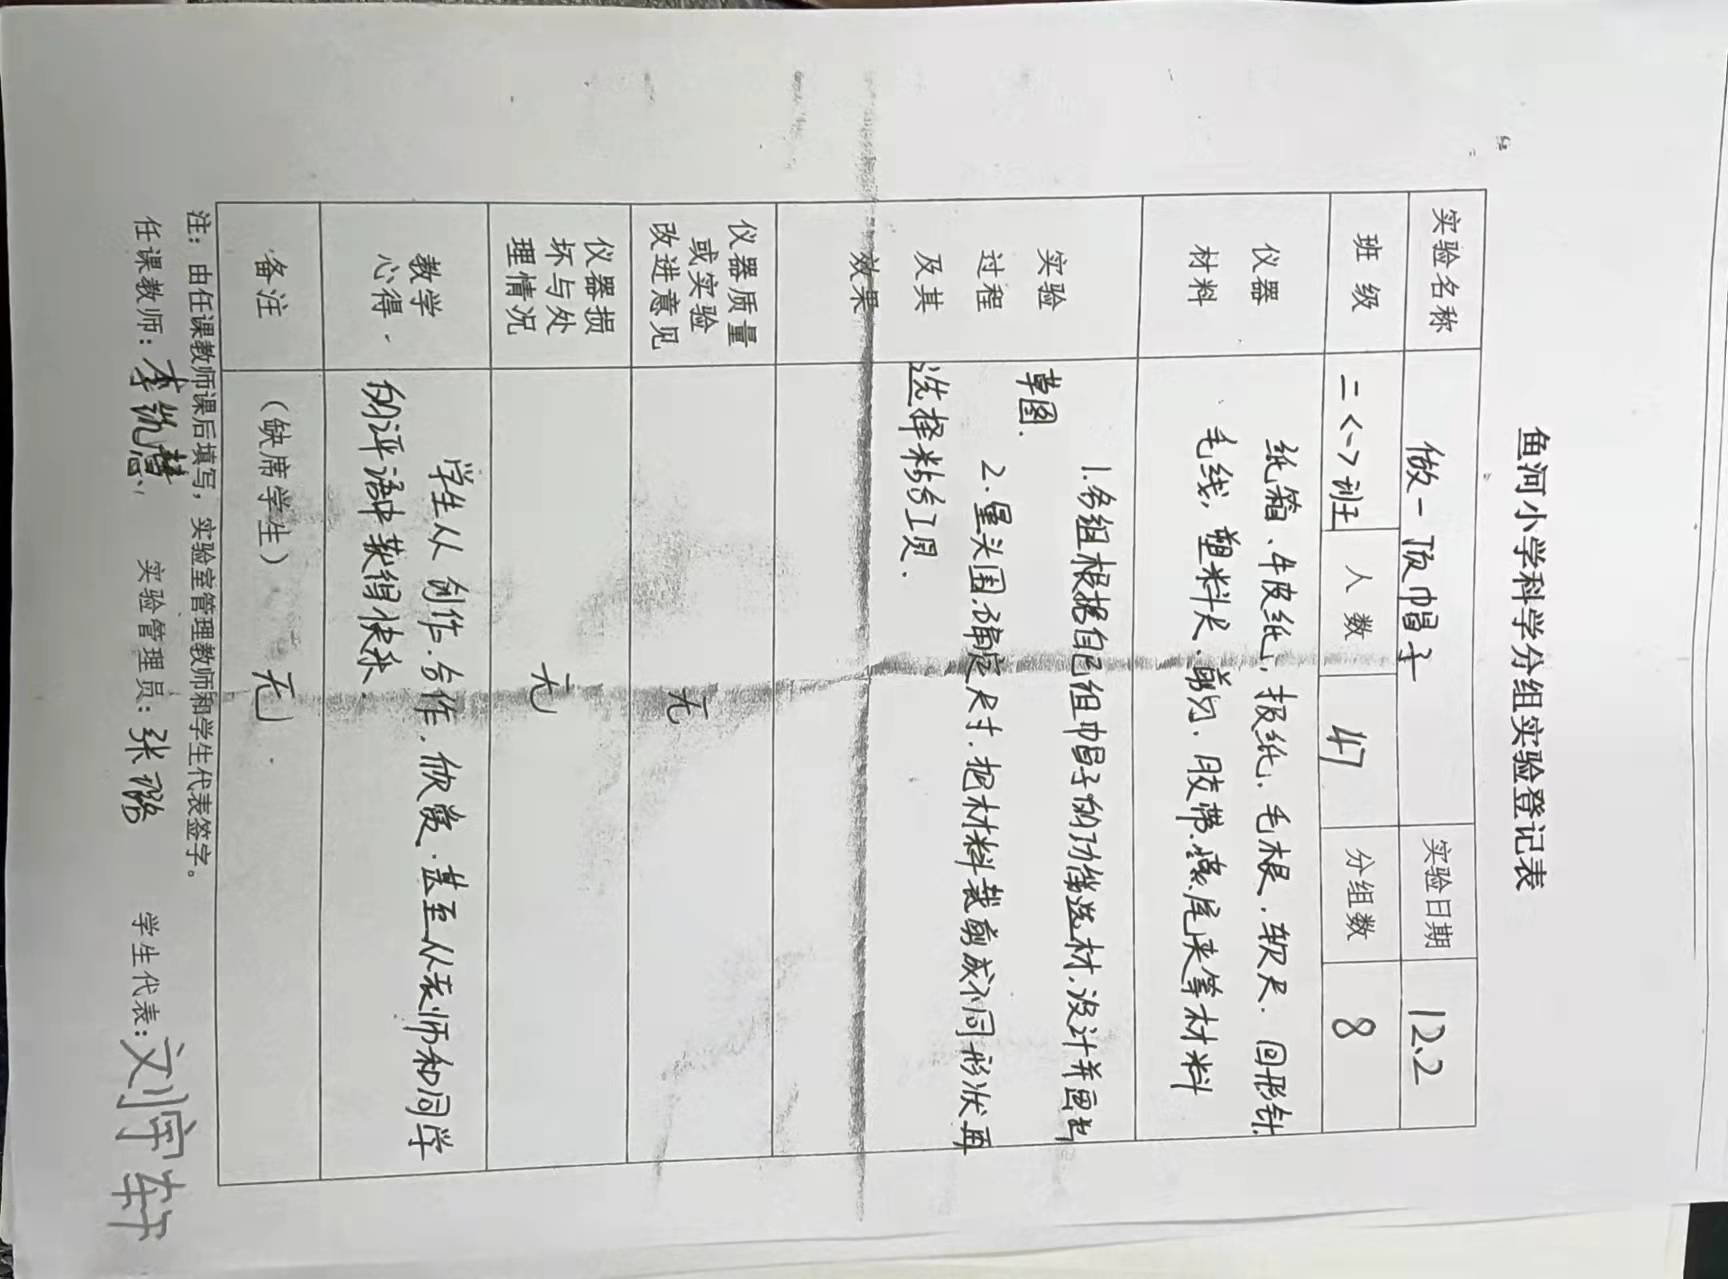 鱼河小学科学分组实验登记表
实验名称 做一顶帽子 实验日期 12.2
班级 二<一>班 人数 47 分组数 8
仪器
材料
纸箱、牛皮纸、报纸、毛根、软尺、回形针、
毛线、塑料尺、剪刀、胶带、燕尾夹等材料
实验
过程
及其
效果
1.各组根据自己组帽子的功能选材、设计并画出
草图.
2.量头围、确定尺寸.把材料裁剪成不同形状再
选择粘合工具.
仪器质量
或实验
改进意见
无
仪器损
坏与处
理情况
无
教学
心得.
学生从创作.合作.欣赏.甚至从老师和同学
的评语中获得快乐.
备注 (缺席学生) 无.
注:由任课教师课后填写,实验室管理教师和学生代表签字。
任课教师: 李 慧 实验管理员: 张璐 学生代表: 刘宇轩